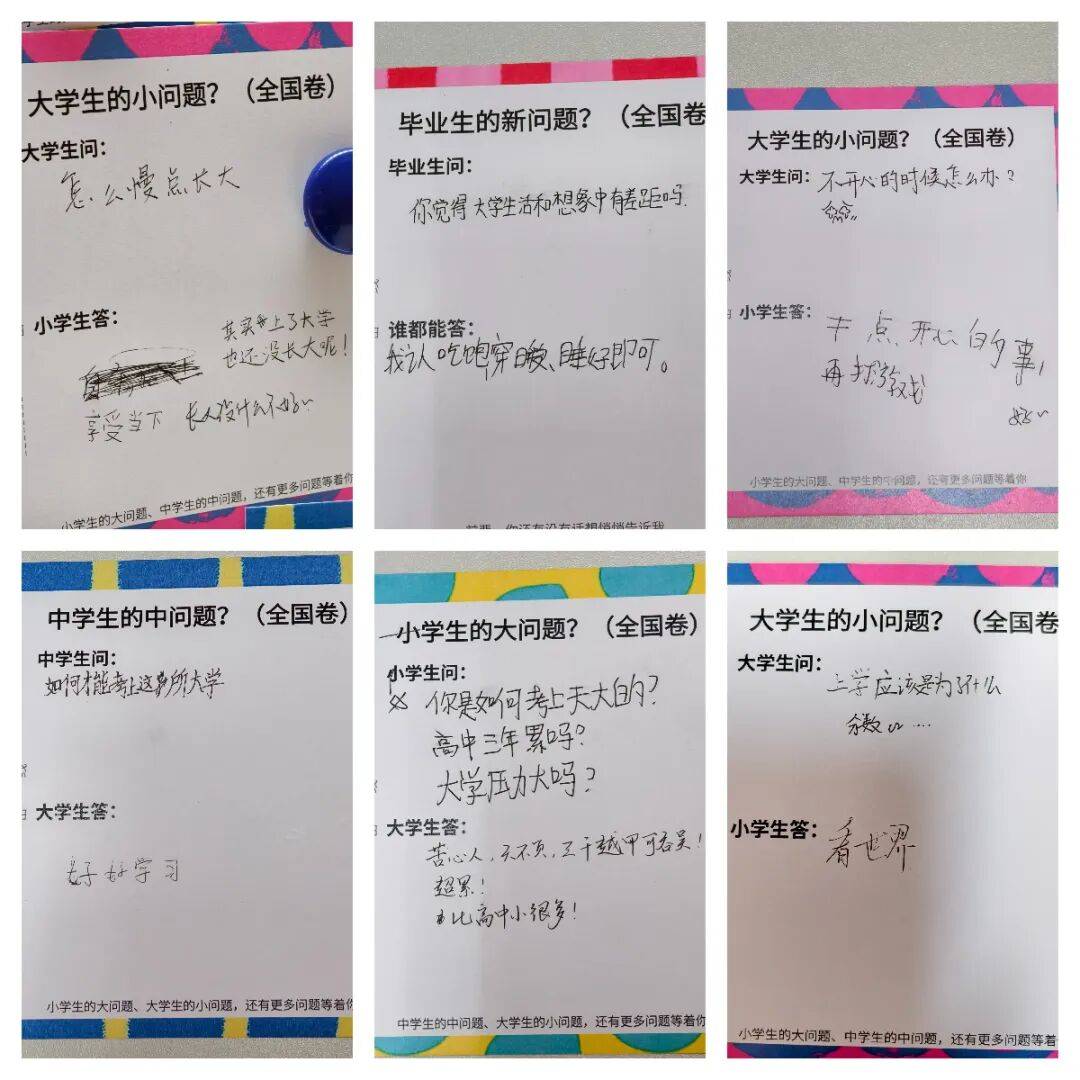 大学生的小问题？（全国卷）
大学生问：
怎么慢点长大
小学生答：
其实上了大学
也还没长大呢！
享受当下
小学生的大问题、中学生的中问题，还有更多问题等着你
毕业生的新问题？（全国卷
毕业生问：
你觉得大学生活和想象中有差距吗.
谁都能答：
我认吃饱穿暖、睡好即可。
前辈，你还有没有话想悄悄告诉我
大学生的小问题？（全国卷）
大学生问：不开心的时候怎么办？
小学生答：
干点开心的事，
再打游戏
小学生的大问题、中学生的中问题，还有更多问题等着你
中学生的中问题？（全国卷）
中学生问：
如何才能考上这所大学
大学生答：
好好学习
小学生的大问题、大学生的小问题，还有更多问题等着你
小学生的大问题？（全国卷）
小学生问：
你是如何考上天大的？
高中三年累吗？
大学压力大吗？
大学生答：
苦心人，天不负，三千越甲可吞吴！
超累！
比高中小很多！
中学生的中问题、大学生的小问题，还有更多问题等着
大学生的小问题？（全国卷
大学生问：
上学应该是为了什么
小学生答：
看世界
小学生的大问题、中学生的中问题，还有更多问题等着你